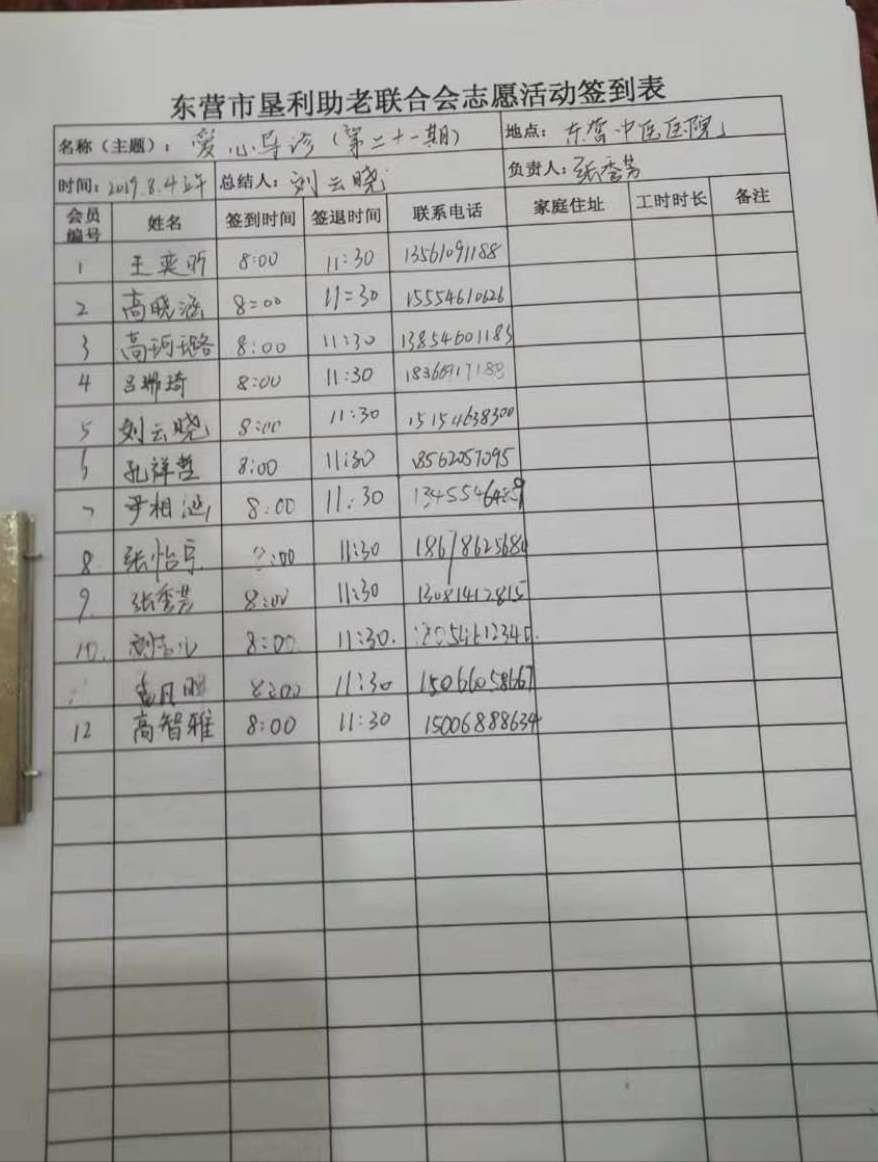 东营市垦利助老联合会志愿活动签到表
名称(主题): 爱心导诊(第二十一期) 地点: 东营中医医院
时间: 2019.8.4上午 总结人: 刘云晓 负责人: 张秀芳
会员编号 姓名 签到时间 签退时间 联系电话 家庭住址 工时时长 备注
1 王奕昕 8:00 11:30 13561091188
2 高晓涵 8:00 11:30 15554610626
3 高珂璐 8:00 11:30 13854601183
4 吕 琦 8:00 11:30
5 刘云晓 8:00 11:30 15154638300
6 孔祥哲 8:00 11:30 18562057095
7 尹相 8:00 11:30
8 张怡宁 8:00 11:30 18678625680
9. 张秀芳 8:00 11:30 13081412815
10. 8:00 11:30.
8:00 11:30 15066058667
12 高智雅 8:00 11:30 15006888634